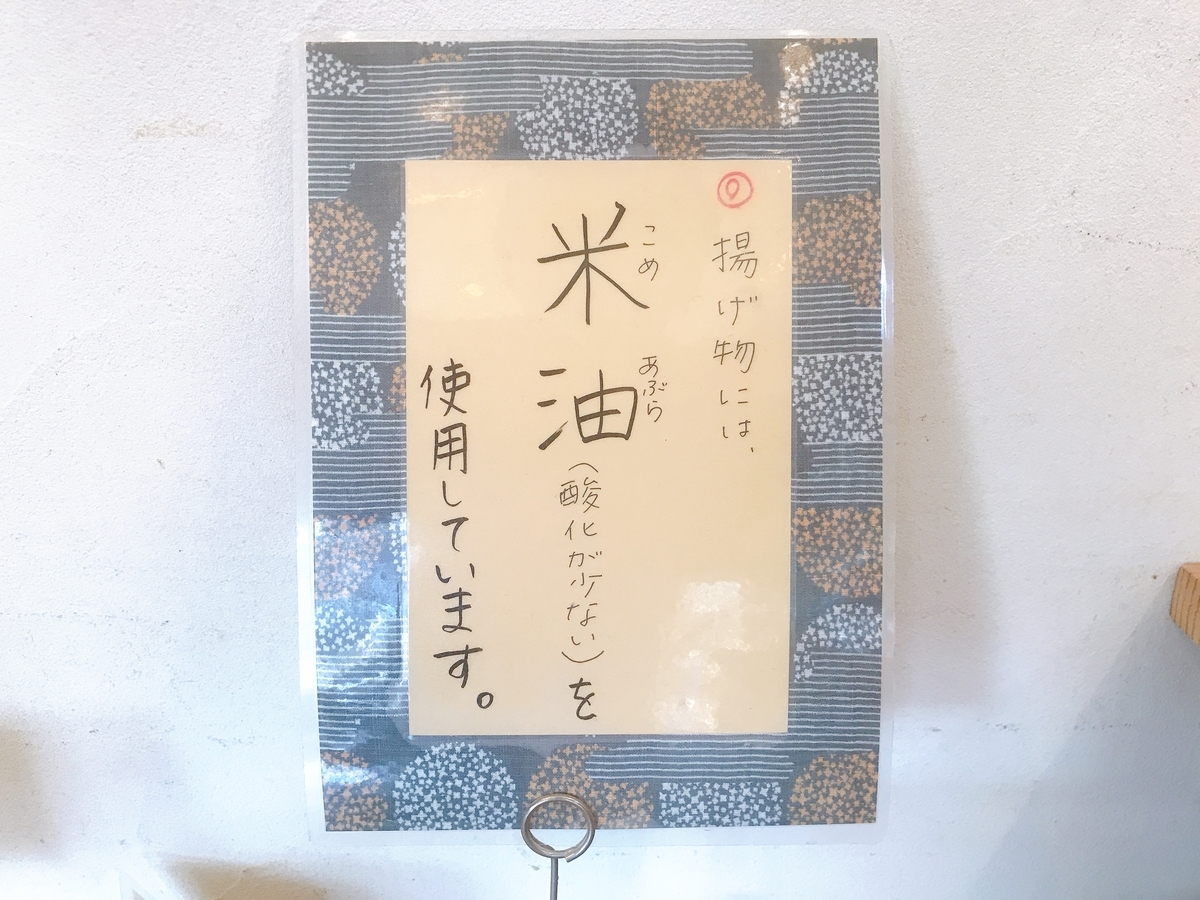 ◎揚げ物には、
米油(酸化が少ない)を
こめ
あぶら
使用しています。